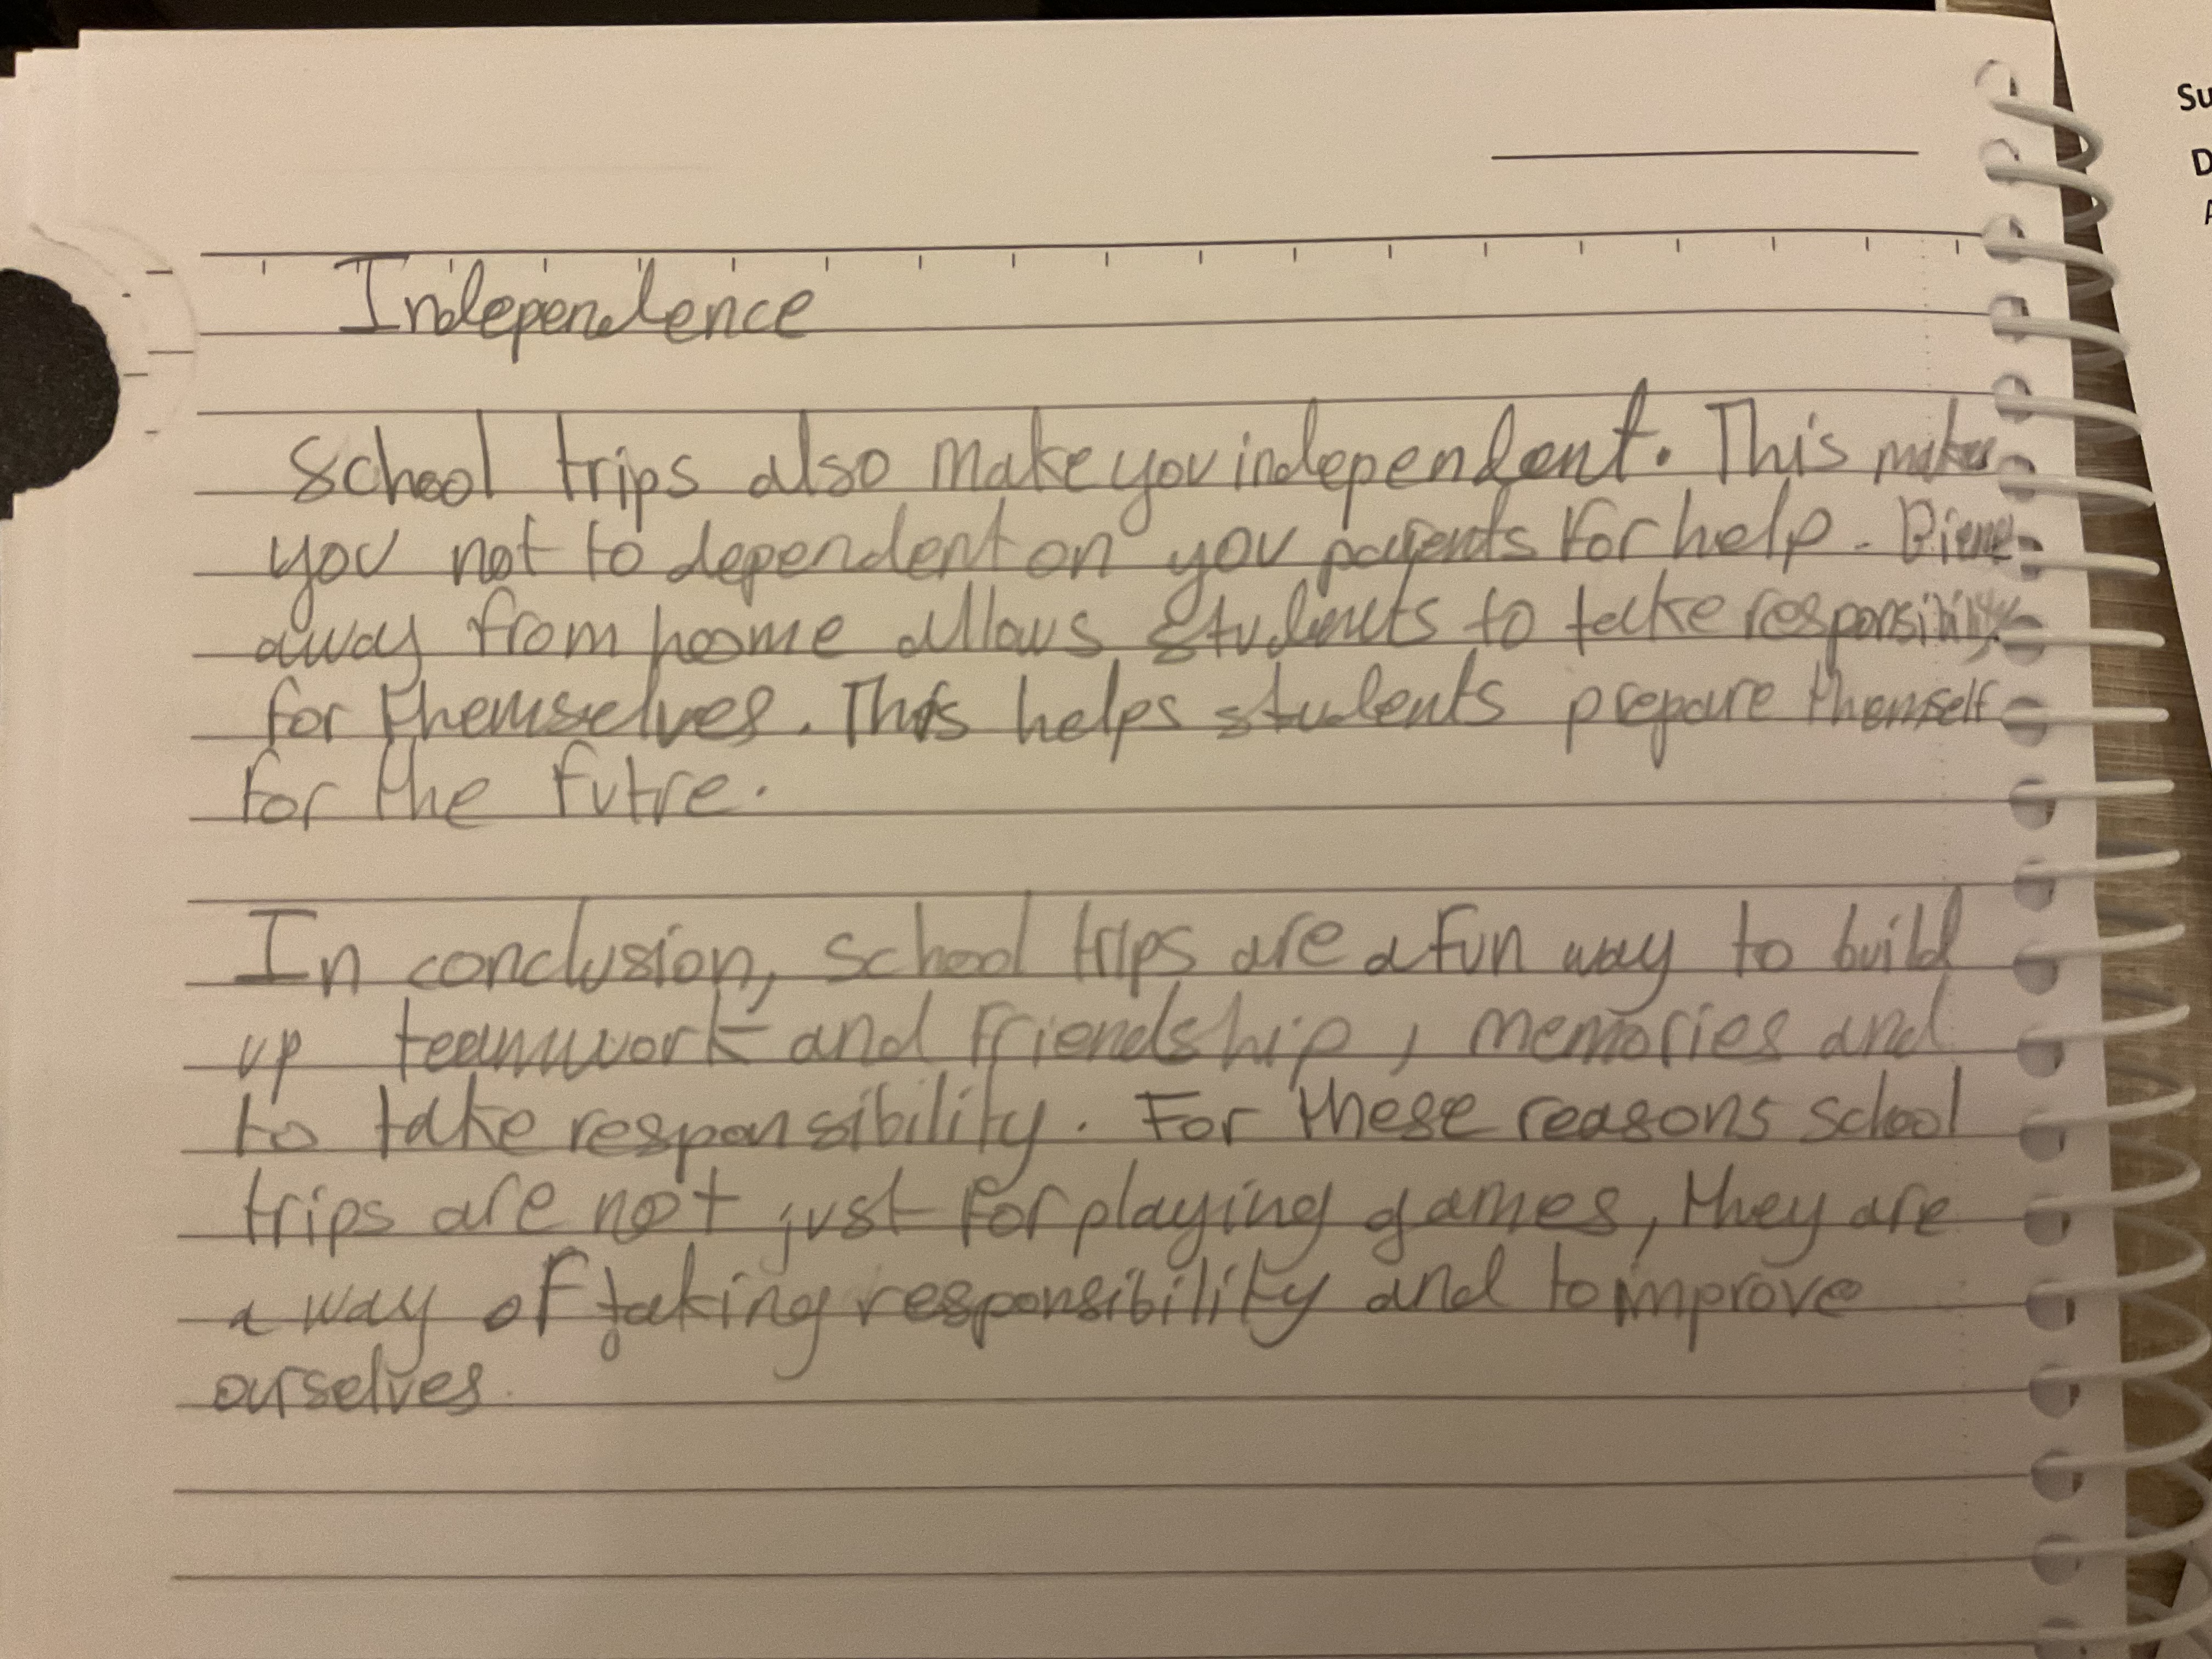 Independence
School trips also make you independent. This makes
you not to dependent on you parents for help.
away from hoome allows students to take responsibility
for themselves. This helps students prepare themself
for the futre.
In conclusion, school trips are a fun way to build
up teamwork and friendship, memories and
to take responsibility. For these reasons school
trips are not just for playing games, they are
a way of taking responsibility and to improve
ourselves.
Su
D